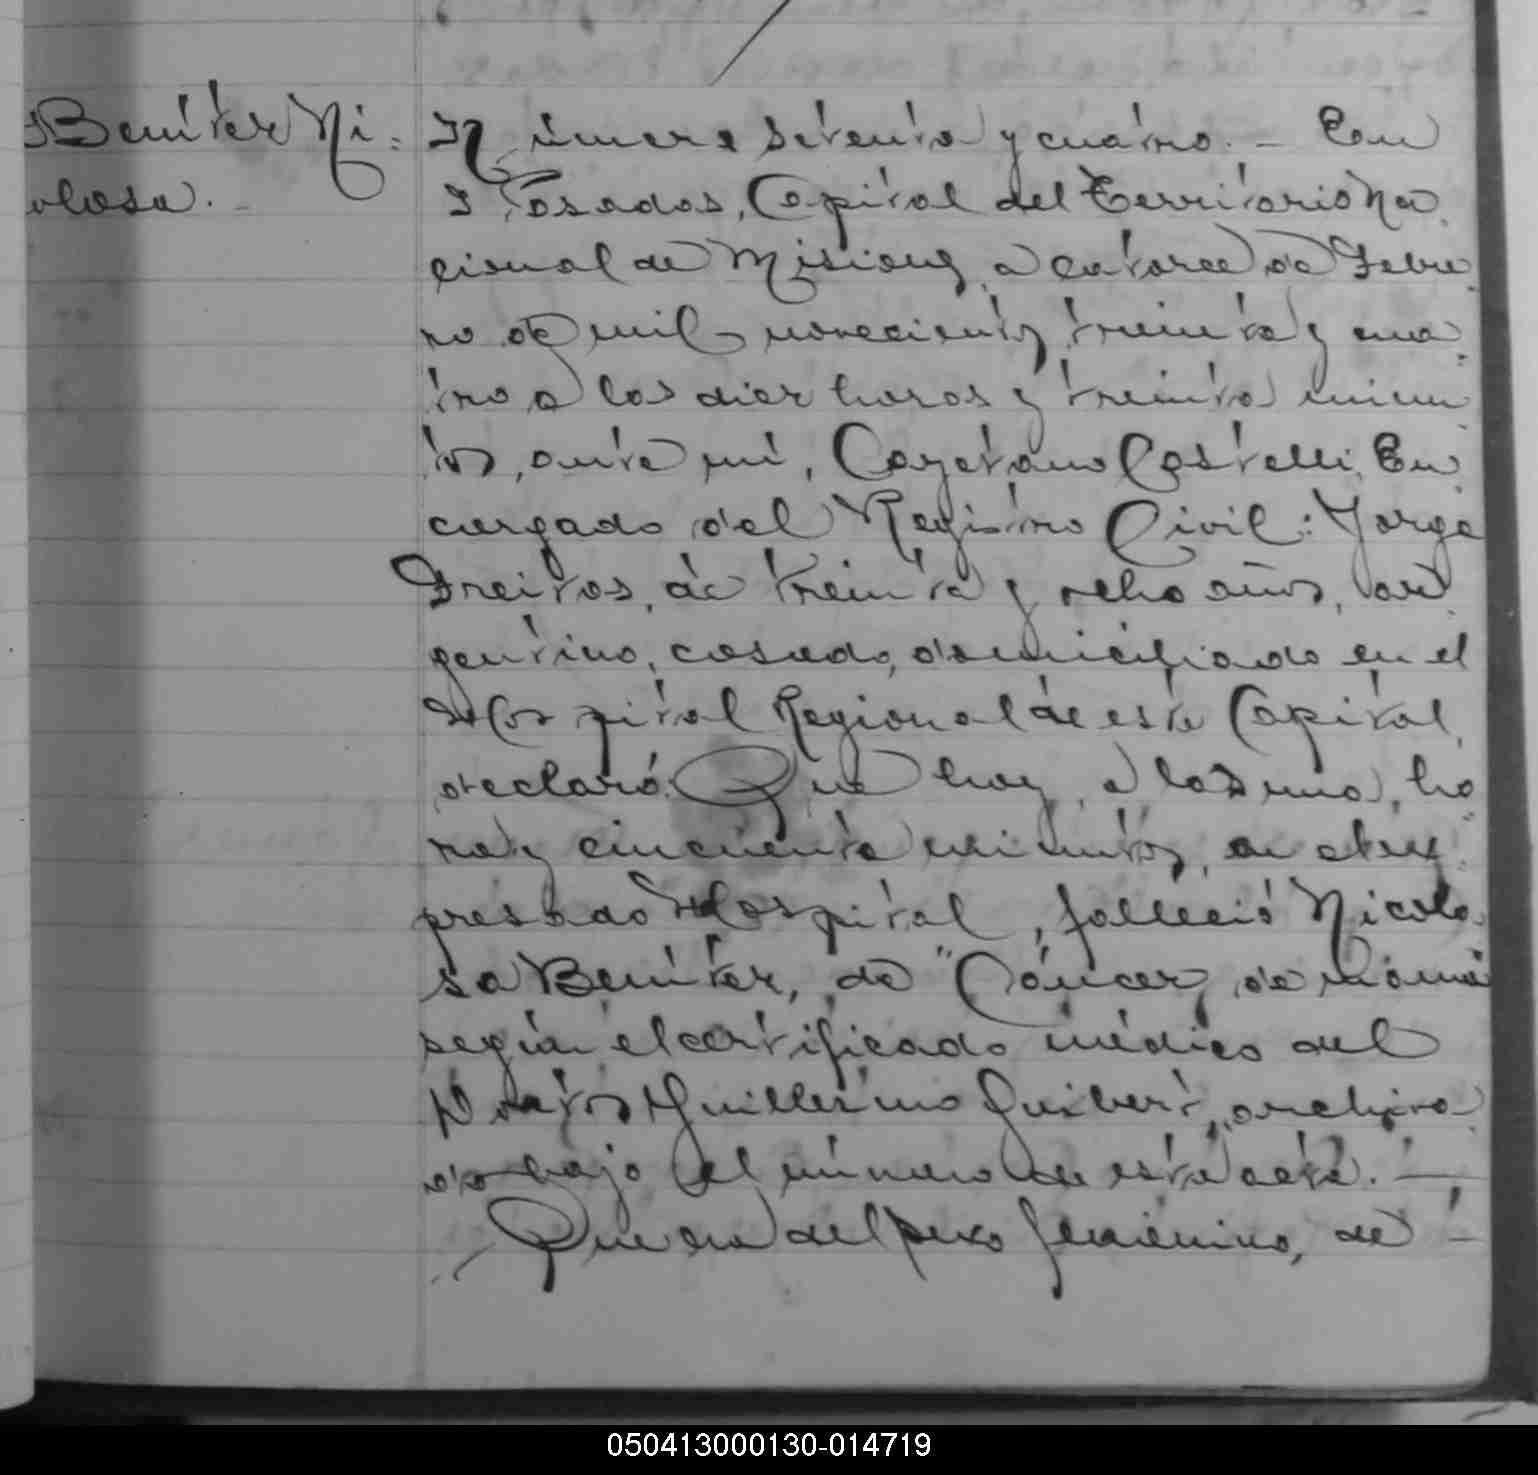 Benitez Ni=
colasa.
Número setenta y cuatro. - En
Posadas, Capital del Territorio Na
cional de Misiones, a catorce de Febre
ro de mil novecientos treinta y cua
tro a las diez horas y treinta minu
tos, ante mi, Cayetano Castelli, En
cargado del Registro Civil: Jorge
Freitas, de treinta y ocho años, ar
gentino, casado, domiciliado en el
Hospital Regional de esta Capital,
declaró: Que hoy, a las una, ho
ra y cincuenta minutos, en el ex
presado Hospital, falleció Nicola
sa Benitez, de "Cáncer de mama
según el certificado médico del
Guillermo archiva
do bajo el número de esta acta. -
Que era del sexo femenino, de -
050413000130-014719